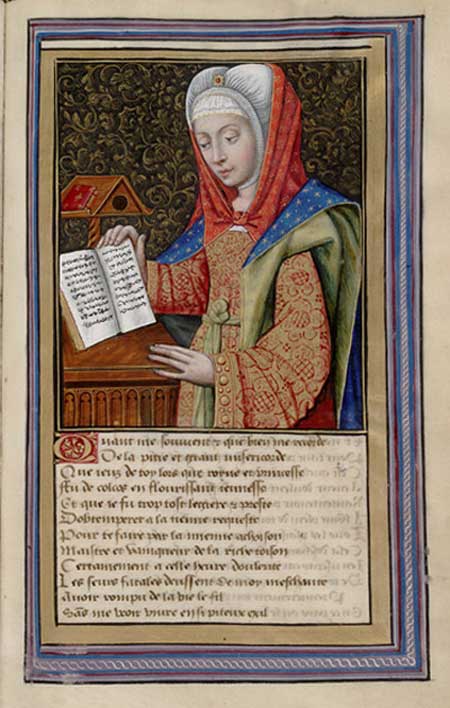 Quant me souvent & que bien me recorde
De la pitie et grant misericorde
Que ieuz de toy lors que royne et princesse
Fu de colcos en flourissant ieunesse
Et que ie fu trop tost legiere & preste
Dobtemperer a la tienne requeste
Pour te faire par la mienne achoison
Maistre et vainqueur de la riche toison
Certainement a celle heure doulente
Les seurs fatales deussent de moy meschante
Avoir rompu de la vie le fil
Sans me veoir vivre en si piteux exil